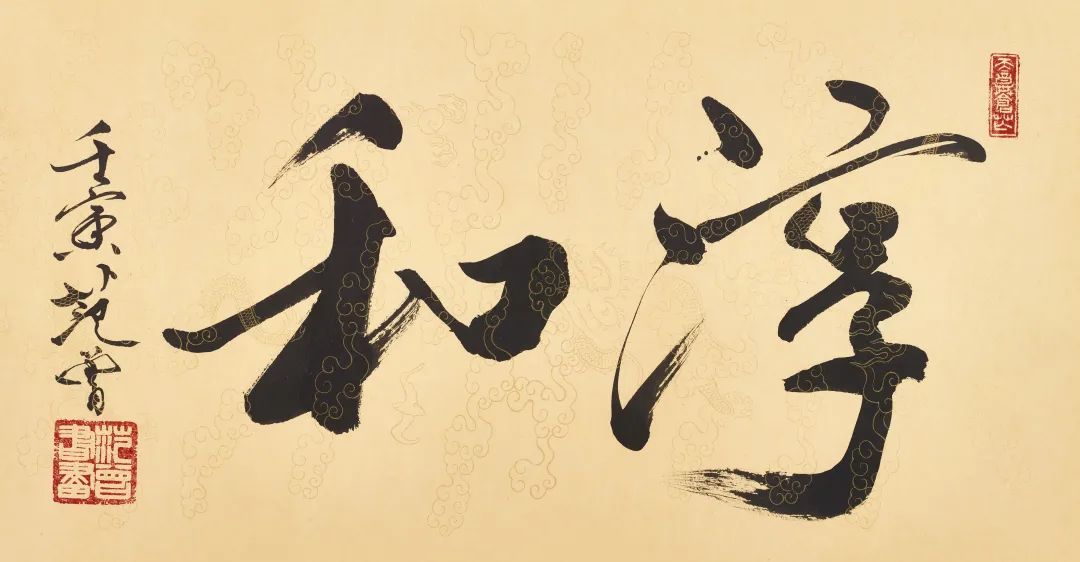 淳和
壬寅
范曾
范曾書畫